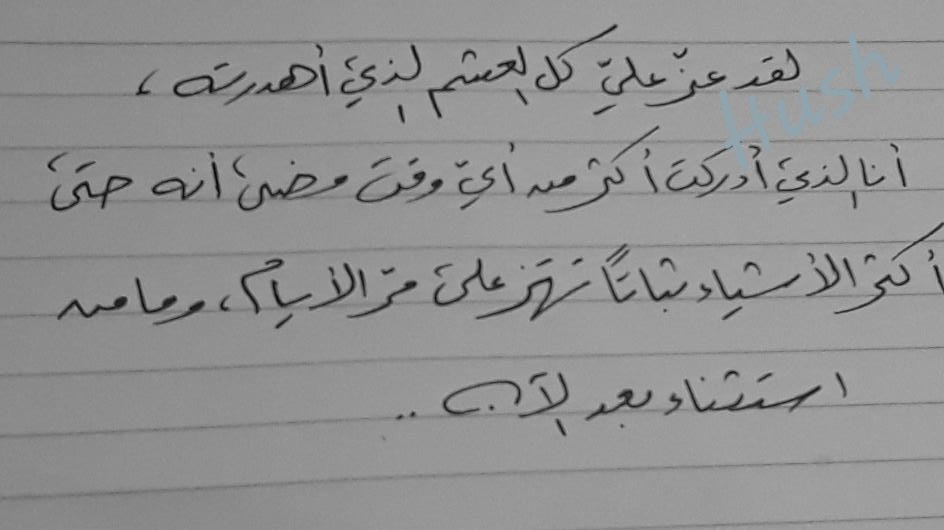 لقد عزّ عليّ كل العشم الذي أهدرته ،
أنا الذي أدركت أكثر من أي وقت مضى أنه حتى
أكثر الأشياء ثباتًا تهتز على مرّ الأيام ، وما من
استثناء بعد الآن ..
Hush